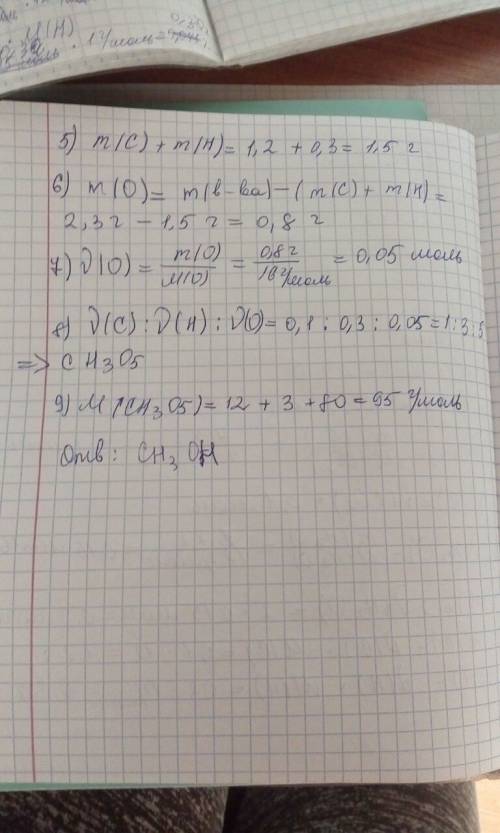 M(H)
1 г/моль =
5) m(C) + m(H) = 1,2 + 0,3 = 1,5 г
6) m(O) = m(в-ва) - (m(C) + m(H) =
2,3 г - 1,5 г = 0,8 г
7) ν(O) = m(O)/M(O) = 0,8 г/16 г/моль = 0,05 моль
8) ν(C) : ν(H) : ν(O) = 0,1 : 0,3 : 0,05 = 1 : 3 : 5
=> CH3O5
9) M(CH3O5) = 12 + 3 + 80 = 95 г/моль
Отв: CH3 OH